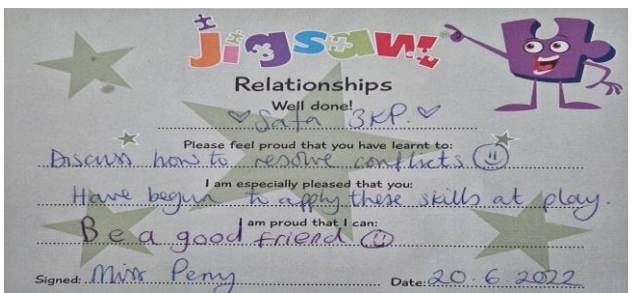 Jigsaw
Relationships
Well done!
Safa 3KP.
Please feel proud that you have learnt to:
Discuss how to resolve conflicts
I am especially pleased that you:
Have begun to apply these skills at play.
I am proud that I can:
Be a good friend
Signed: Miss Perry Date: 20.6.2022